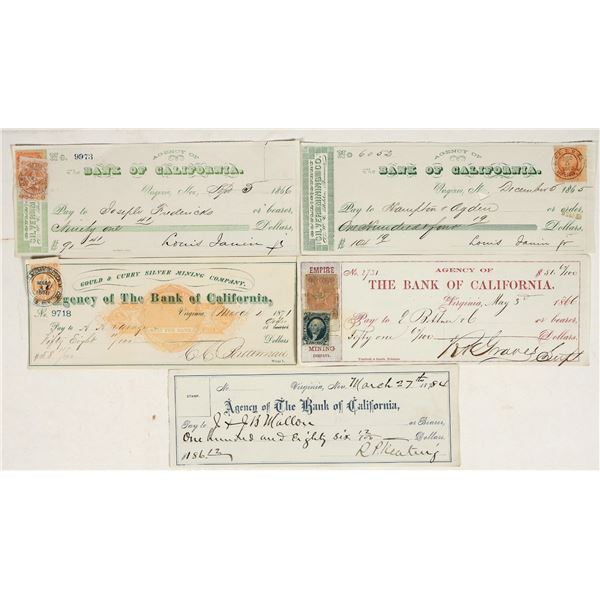 No. 9973
AGENCY OF
The BANK OF CALIFORNIA.
Virginia, Nev. Sept 5 1866
Pay to Joseph Fredericks or bearer,
Ninety one 41 Dollars,
$ 91 41 Louis Janin Jr
SILVER MINING CO.
No 6052
AGENCY OF
The BANK OF CALIFORNIA.
Virginia, N. December 6 1865
Pay to Hampton & Ogden or order,
One Hundred four 19 Dollars,
$ 104 19 Louis Janin Jr
GOULD & CURRY SILVER MINING COMPANY.
Agency of The Bank of California,
No. 9718 Virginia, 187
Pay to or bearer
Fifty Eight Dollars
$ 58
EMPIRE
MINING
COMPANY.
No. 2731 AGENCY OF $ 51
THE BANK OF CALIFORNIA.
Virginia, May 3 1866
Pay to E or bearer,
Fifty one Dollars.
Graves Supt
STAMP.
No. Virginia, Nev. March 27th 1884
Agency of The Bank of California,
Pay to J & J B Mallon or Bearer,
One hundred and Eighty six 12/100 Dollars.
$186.12 R. P. Keating